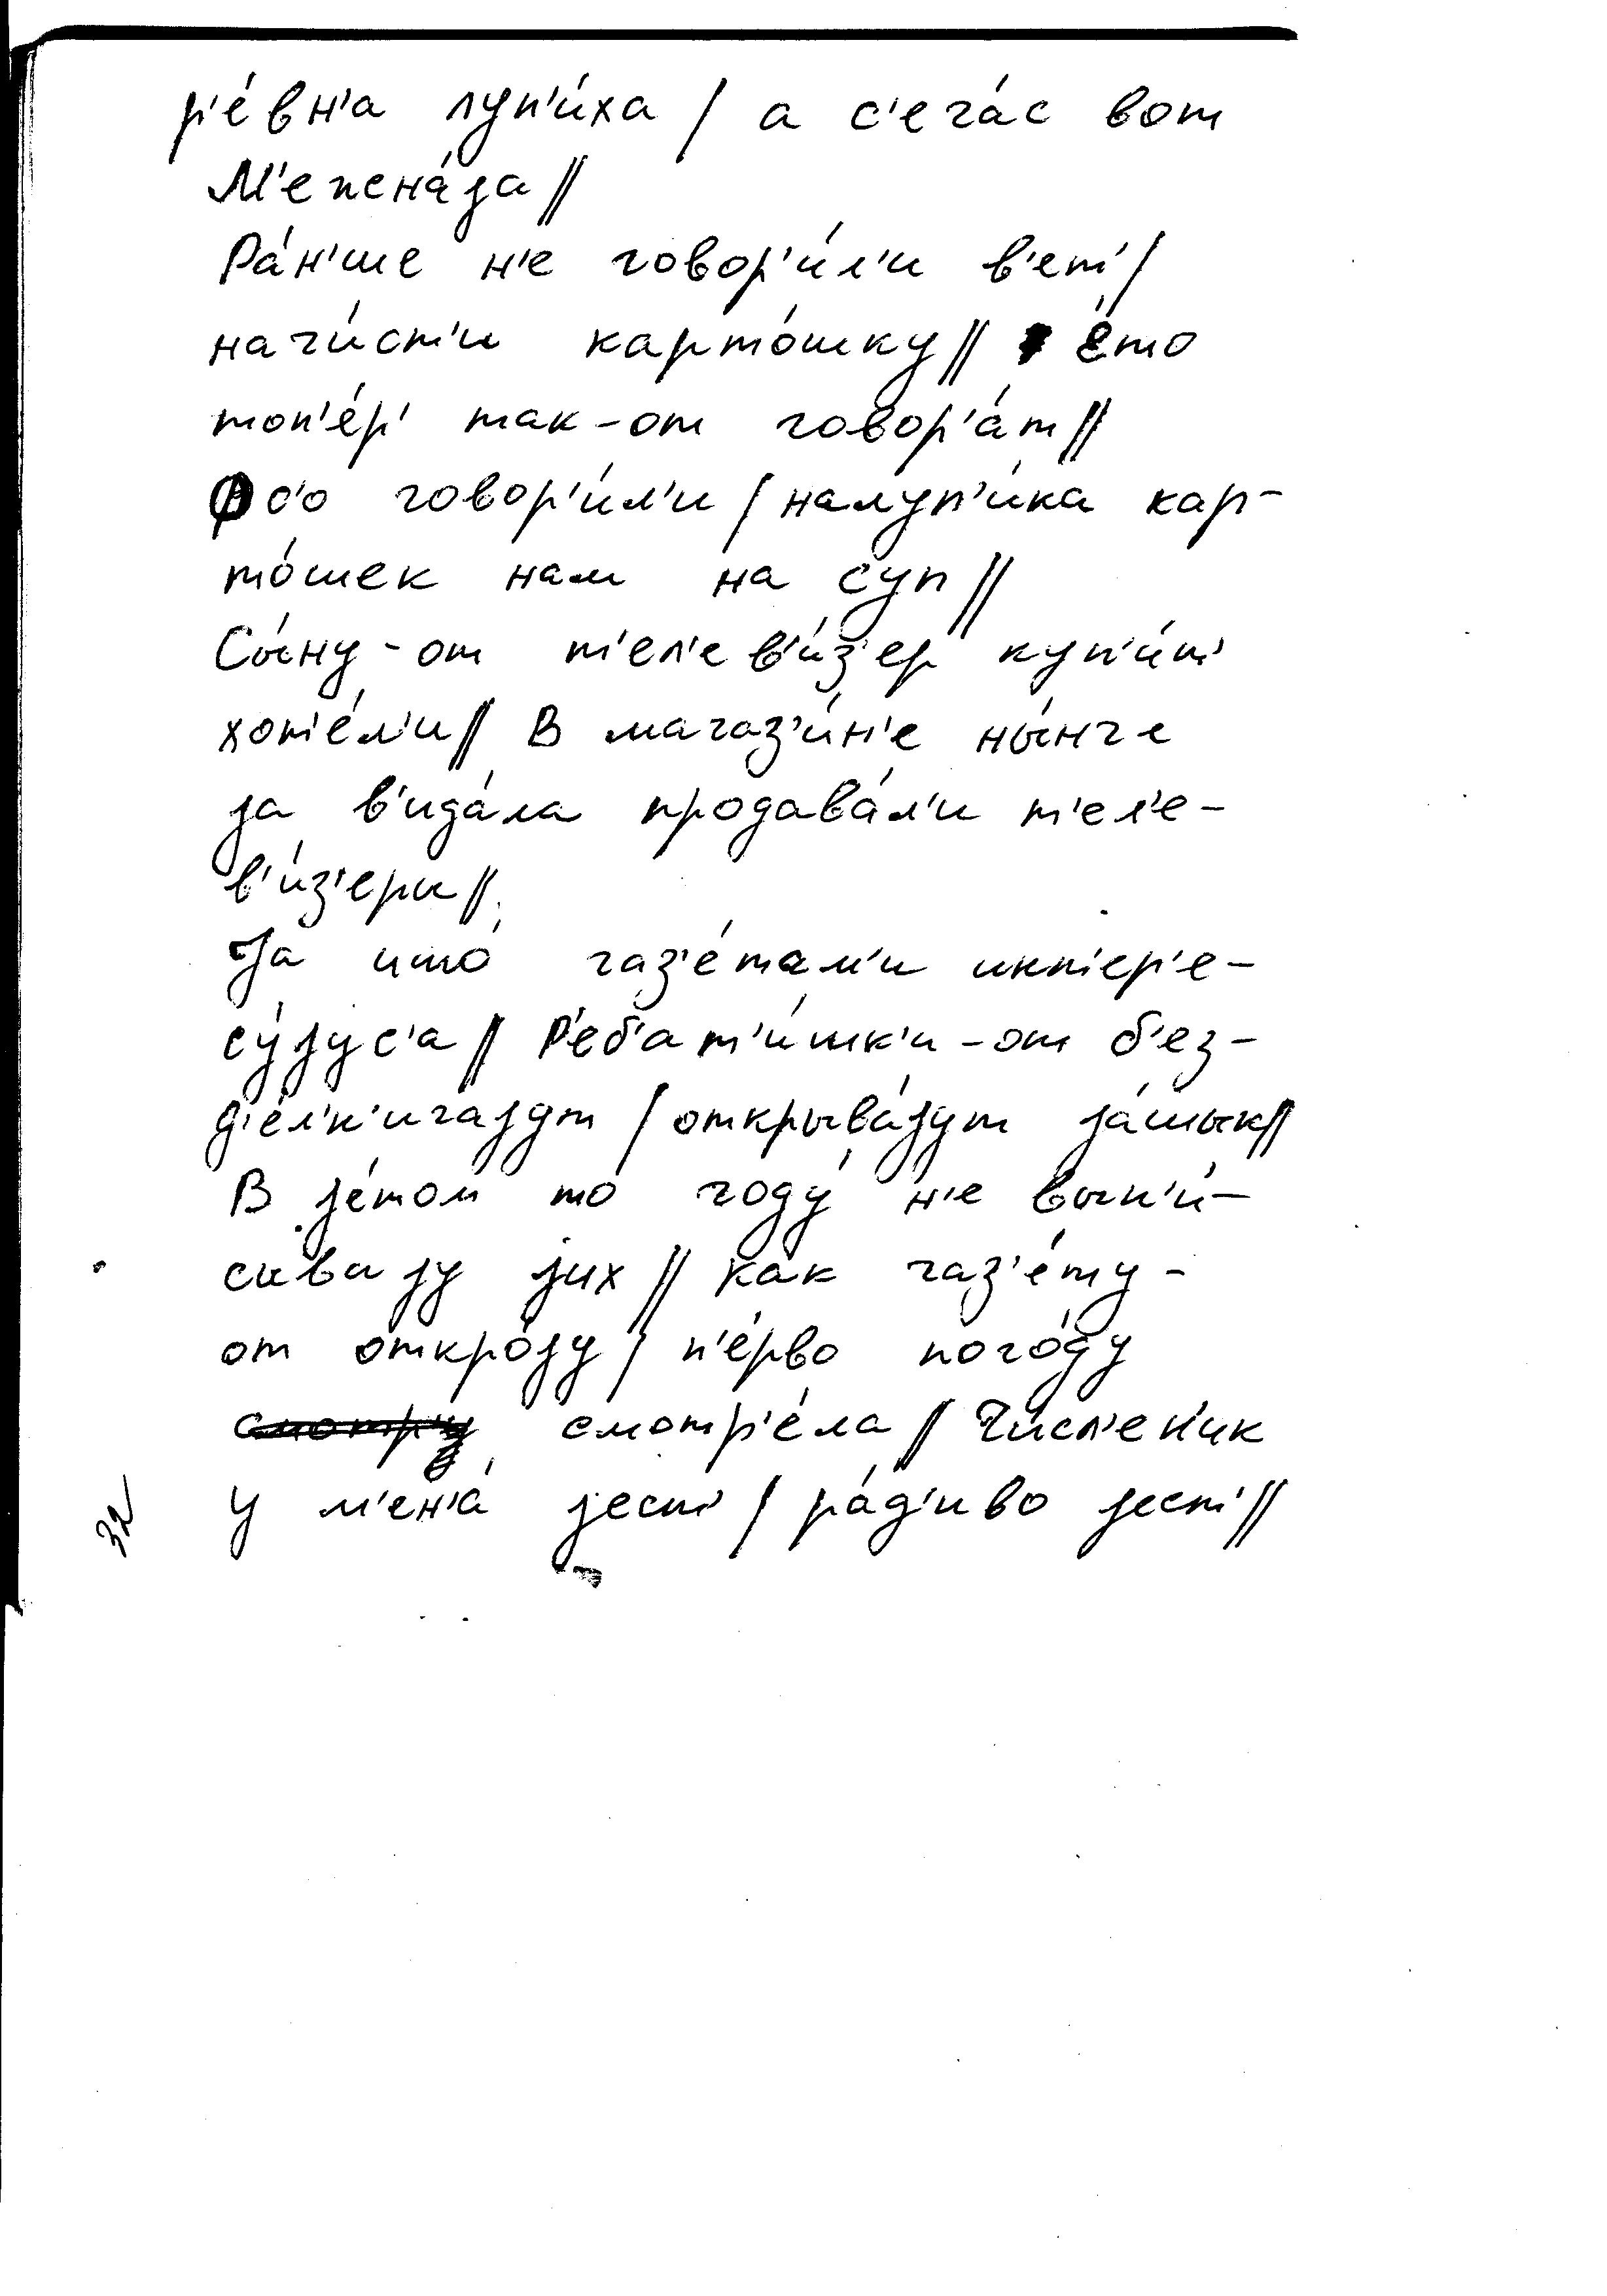 р'е́вн'а луп'и́ха / а с'еча́с вот
М'епсна́jа //
Ра́н'ше н'е говор'и́л'и в'ет' /
начи́ст'и карто́шку // е́то
топ'е́р' так-от говор'а́т //
с'о говор'и́л'и / налуп'и́ка кар-
то́шек нам на суп //
Сы́ну-от т'ел'ев'и́з'ер куп'и́т'
хот'е́л'и // В магаз'и́н'е ны́нче
jа в'ида́ла продава́л'и т'ел'е-
в'и́з'еры //
Jа што́ газ'е́там'и инт'ер'е-
су́jус'а // Р'еб'ат'и́шк'и-от б'ез-
д'е́л'к'и чаjут / открыва́jут jа́шык //
В jе́том то́ году́ н'е вып'и́-
сываjу jих // Как газ'е́ту-
от откро́jу / п'е́рво пого́ду
смотру смотр'е́ла // Чи́сл'ен'ик
у м'ен'а́ jест' / ра́д'иво jест' //
32